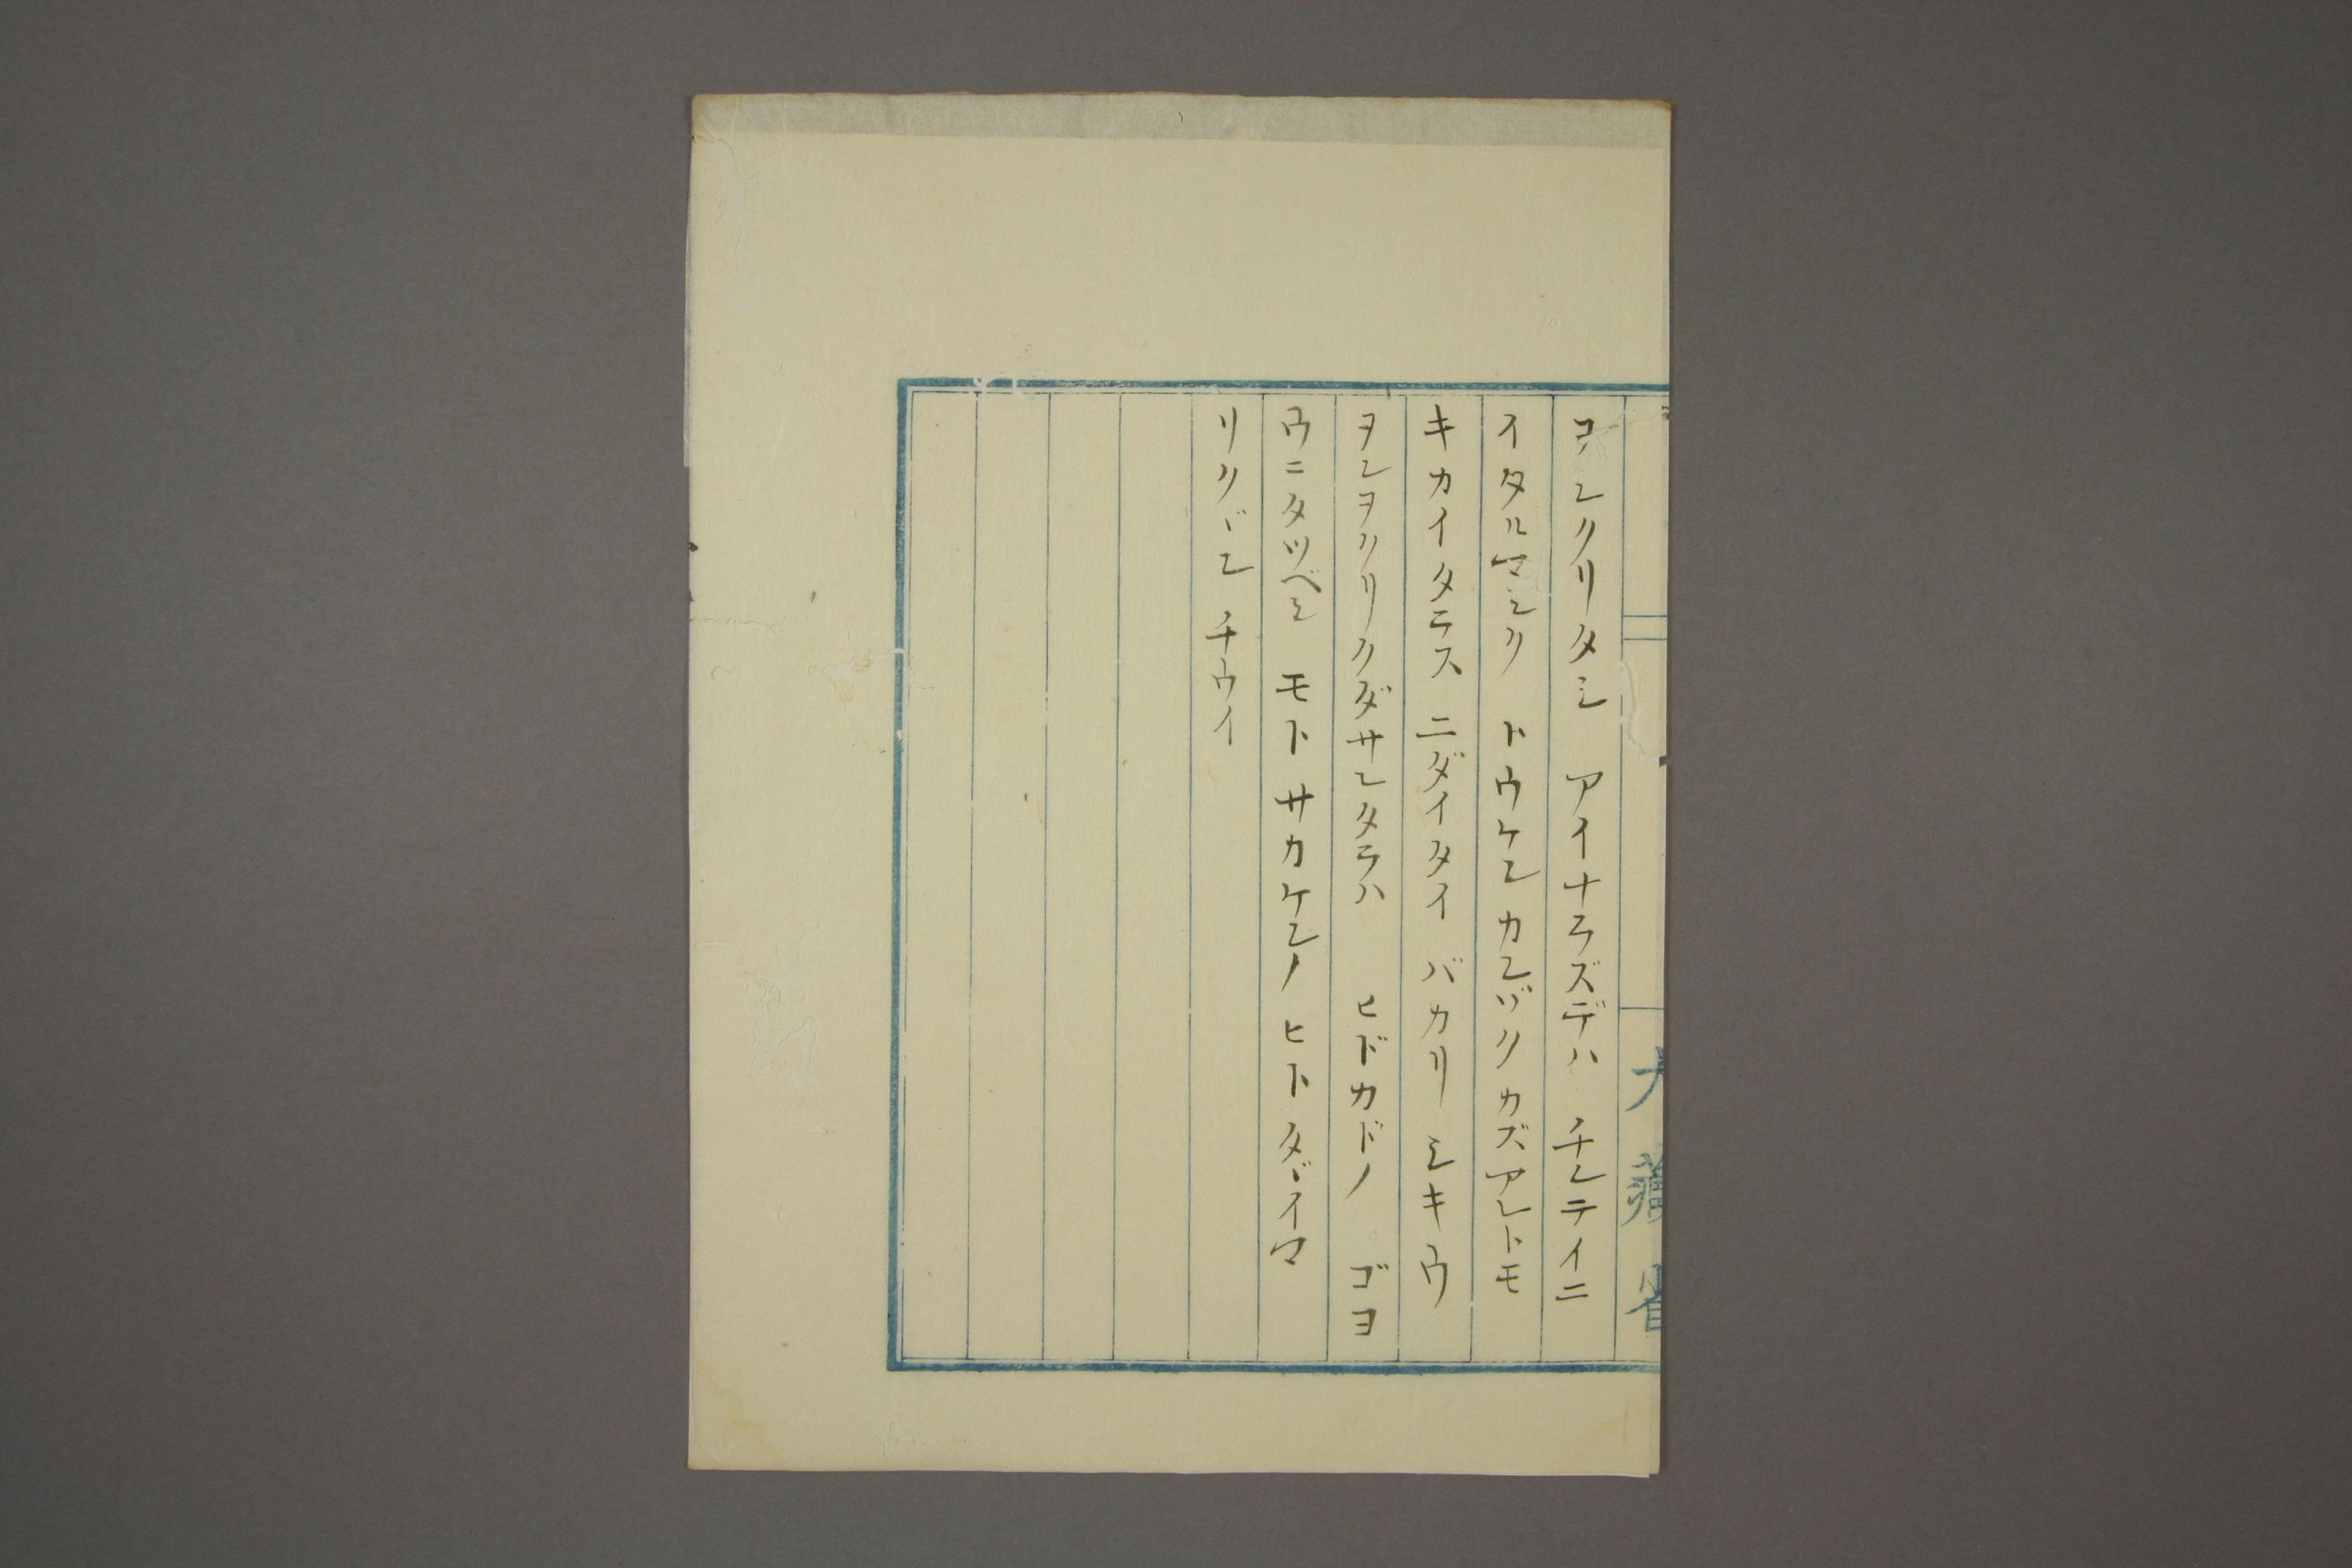 大藏省
ヲンクリタシ アイナラズデハ チンテイニ
イタルマシク トウケン カンゾク カズアレトモ
キカイタラス ニダイタイ バカリ シキウ
ヲンヲクリクダサレタラハ ヒドカドノ ゴヨ
ウニタツベシ モト サカケンノ ヒト タヾイマ
リクヾン チウイ